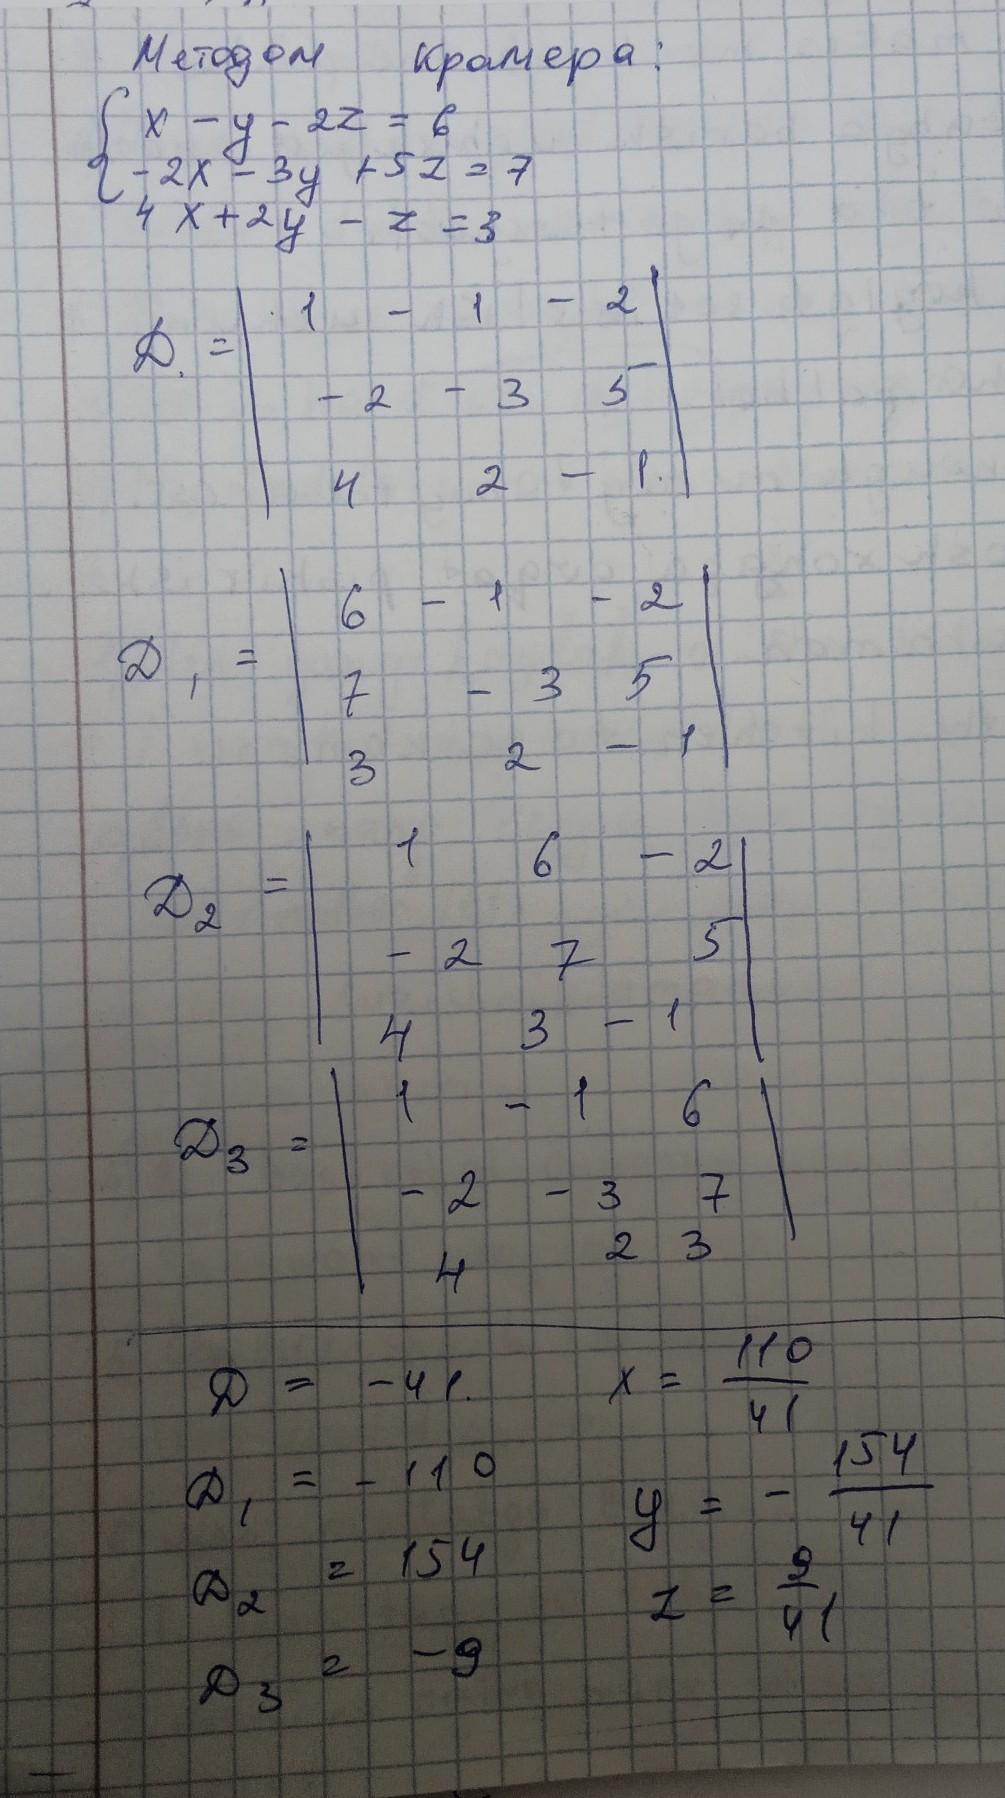 Методом Крамера:
x - y - 2z = 6
-2x - 3y + 5z = 7
4x + 2y - z = 3
D = | 1 -1 -2 |
| -2 -3 5 |
| 4 2 -1 |
D1 = | 6 -1 -2 |
| 7 -3 5 |
| 3 2 -1 |
D2 = | 1 6 -2 |
| -2 7 5 |
| 4 3 -1 |
D3 = | 1 -1 6 |
| -2 -3 7 |
| 4 2 3 |
D = -41. x = 110/41
D1 = -110 y = - 154/41
D2 = 154 z = 9/41
D3 = -9